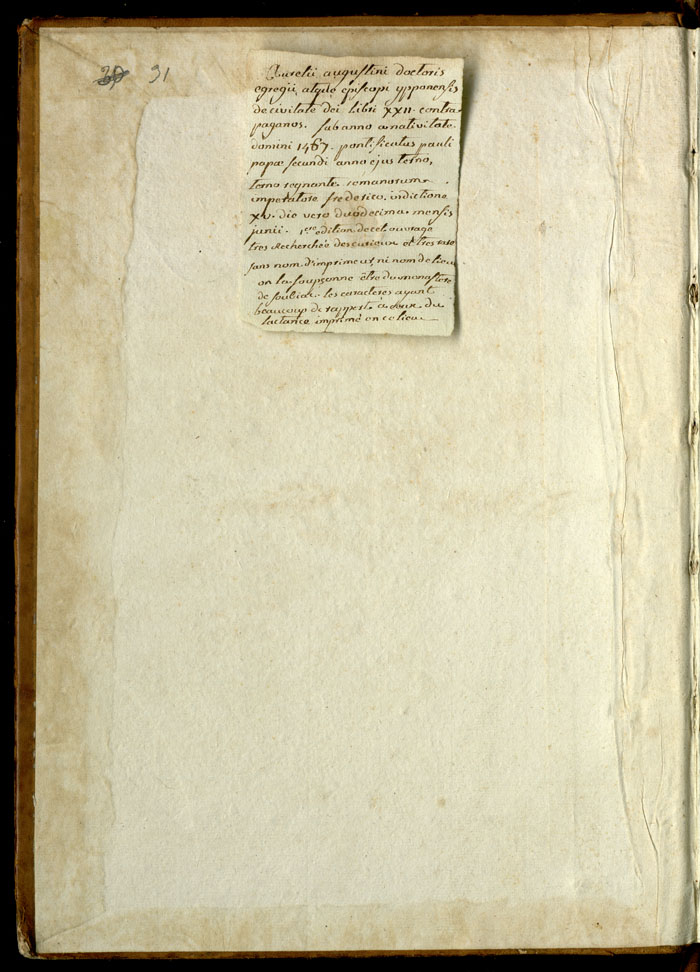 31
Aurelii augustini doctoris
egregii, atque episcopi ypponensis
de civitate dei libri XXII. contra
paganos. sub anno a nativitate
domini 1467. pontificatus pauli
papæ secundi anno ejus terno,
terno regnante romanorum
imperatore frederico, indictione
XV. die vero duodecima mensis
junii. 1ere edition de cet ouvrage
tres Recherchée des curieux et tres rare
sans nom d'imprimeur, ni nom de lieu
on la soupçonne être du monastere
de soubiac. les caracteres ayant
beaucoup de rapport à ceux du
lactance imprimé en ce lieu